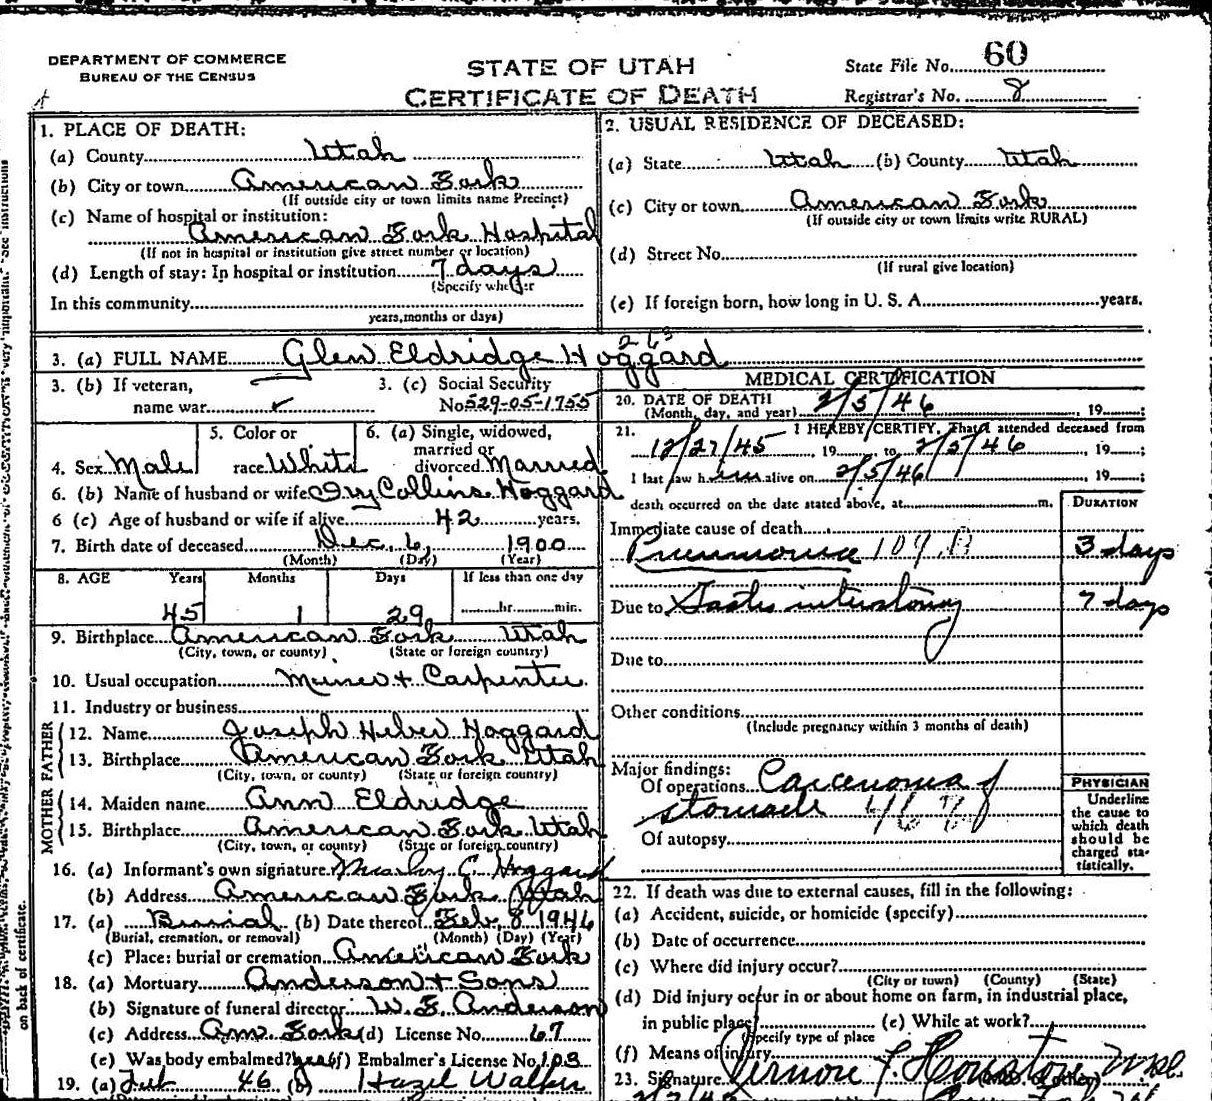 DEPARTMENT OF COMMERCE
BUREAU OF THE CENSUS
STATE OF UTAH
CERTIFICATE OF DEATH
State File No. 60
Registrar's No. 8
1. PLACE OF DEATH:
(a) County Utah
(b) City or town American Fork
(If outside city or town limits name Precinct)
(c) Name of hospital or institution:
American Fork Hospital
(If not in hospital or institution give street number or location)
(d) Length of stay: In hospital or institution 7 days
(Specify whether
In this community
years, months or days)
2. USUAL RESIDENCE OF DECEASED:
(a) State Utah (b) County Utah
(c) City or town American Fork
(If outside city or town limits write RURAL)
(d) Street No.
(If rural give location)
(e) If foreign born, how long in U. S. A. years.
263
3. (a) FULL NAME Glen Eldridge Hoggard
3. (b) If veteran,
name war
3. (c) Social Security
No. 529-05-1755
4. Sex Male
5. Color or
race White
6. (a) Single, widowed,
married or
divorced Married
6. (b) Name of husband or wife Ivy Collins Hoggard
6 (c) Age of husband or wife if alive 42 years.
7. Birth date of deceased Dec. 6, 1900
(Month) (Day) (Year)
8. AGE Years Months Days If less than one day
45 1 29 hr. min.
9. Birthplace American Fork Utah
(City, town, or county) (State or foreign country)
10. Usual occupation Miner + Carpenter
11. Industry or business
FATHER
12. Name Joseph Heber Hoggard
13. Birthplace American Fork Utah
(City, town, or county) (State or foreign country)
MOTHER
14. Maiden name Ann Eldridge
15. Birthplace American Fork Utah
(City, town, or county) (State or foreign country)
16. (a) Informant's own signature C. Hoggard
(b) Address American Fork Utah
17. (a) Burial (b) Date thereof Feb. 8 1946
(Burial, cremation, or removal) (Month) (Day) (Year)
(c) Place: burial or cremation American Fork
18. (a) Mortuary Anderson + Sons
(b) Signature of funeral director W. E. Anderson
(c) Address Am. Fork (d) License No. 67
(e) Was body embalmed? yes (f) Embalmer's License No. 103
19. (a) 46 (b) Hazel Walker
MEDICAL CERTIFICATION
20. DATE OF DEATH
(Month, day, and year) 2/5/46, 19
21. I HEREBY CERTIFY, That I attended deceased from
12/27/45, 19 to 2/5/46, 19;
I last saw him alive on 2/5/46, 19;
death occurred on the date stated above, at m.
DURATION
Immediate cause of death
Pneumonia 107 B 3 days
Due to 7 days
Due to
Other conditions
(Include pregnancy within 3 months of death)
Major findings:
Of operations Carcenoma of
stomach 46 B
Of autopsy
PHYSICIAN
Underline
the cause to
which death
should be
charged sta-
tistically.
22. If death was due to external causes, fill in the following:
(a) Accident, suicide, or homicide (specify)
(b) Date of occurrence
(c) Where did injury occur?
(City or town) (County) (State)
(d) Did injury occur in or about home on farm, in industrial place,
in public place (e) While at work?
(Specify type of place
(f) Means of injury
23. Signature Vernon F Houston
on back of certificate.